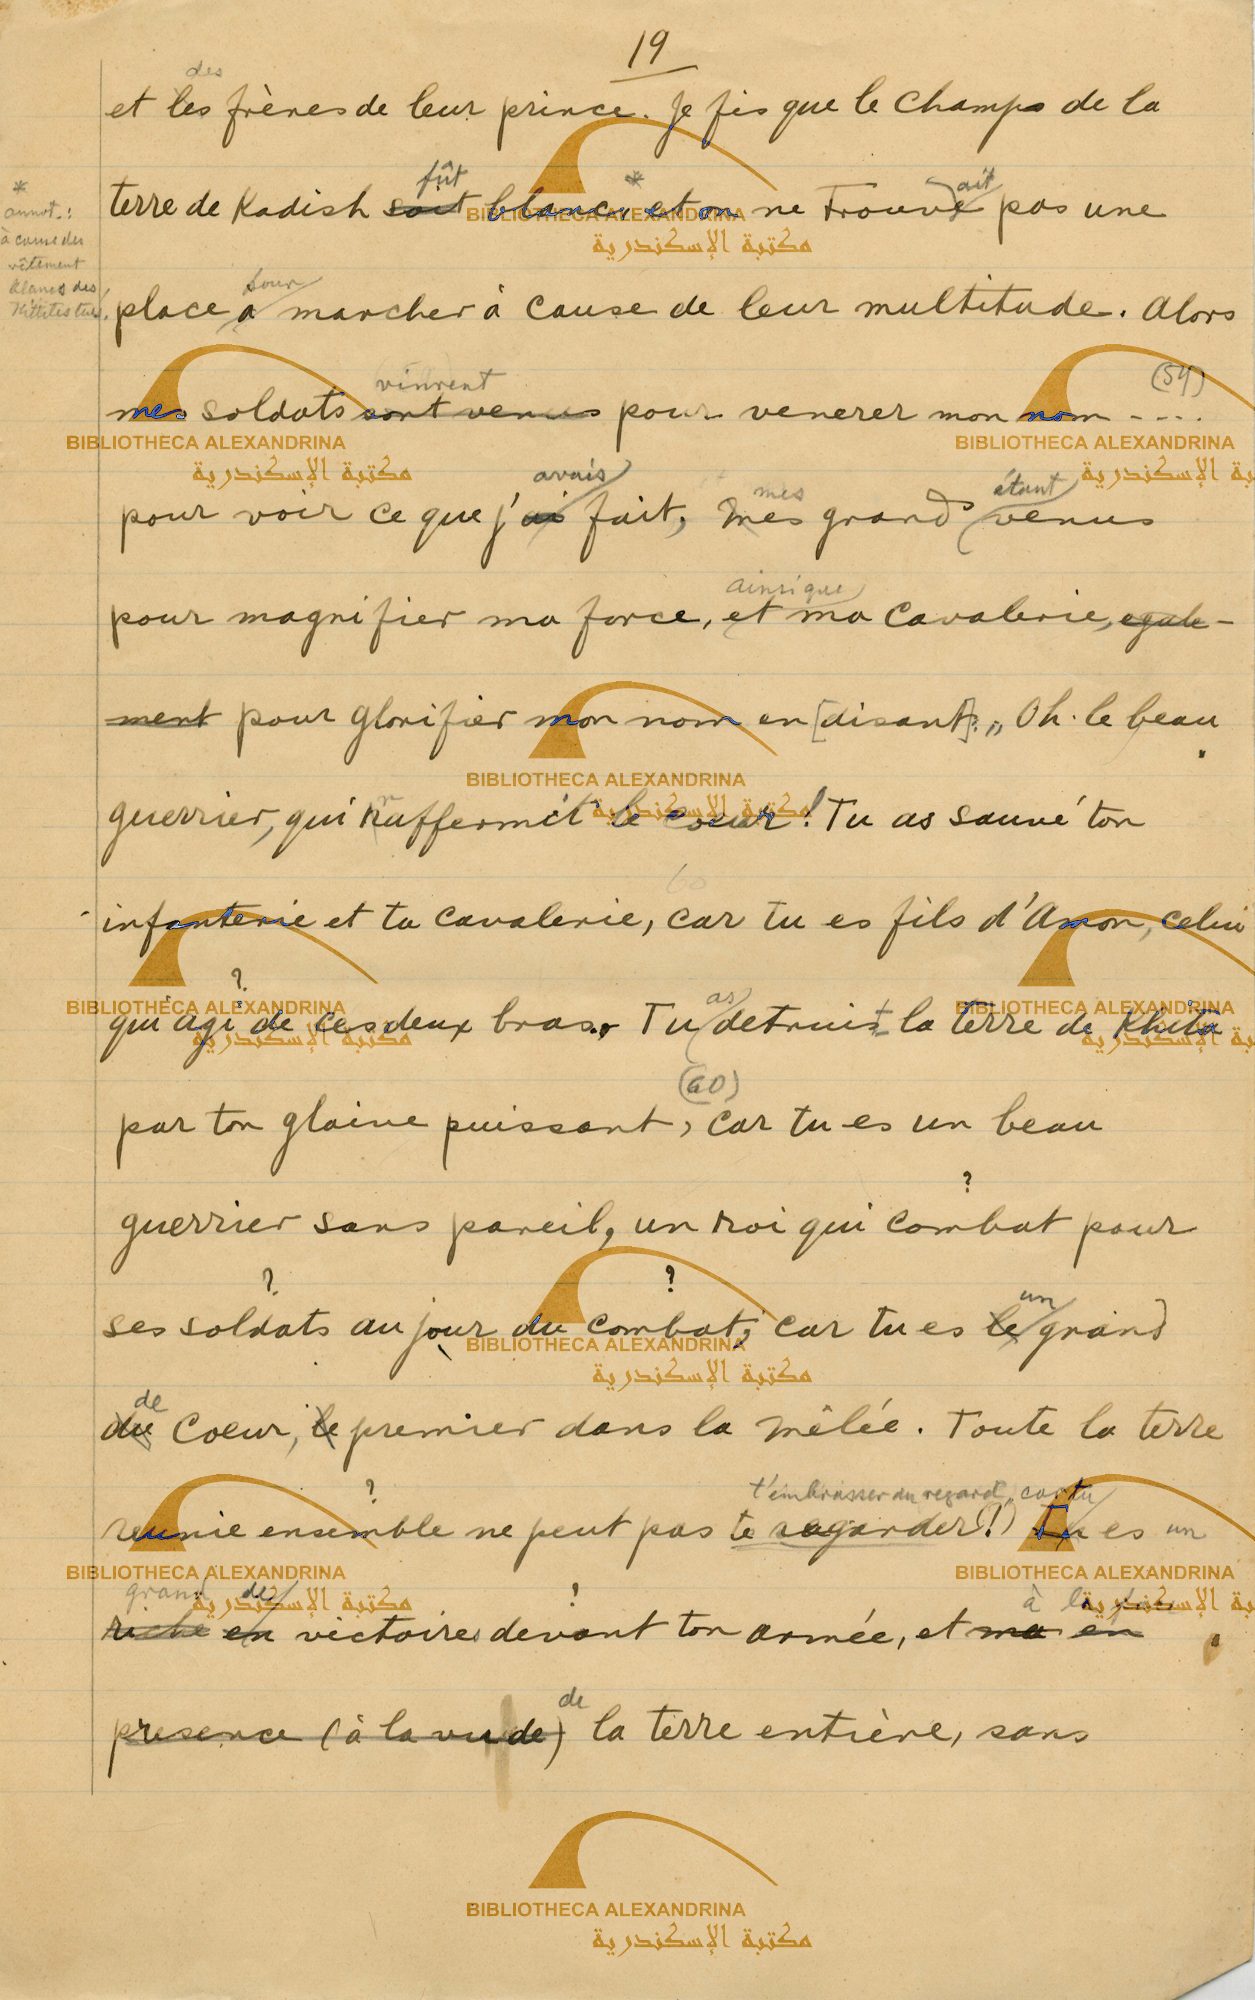 19
des
et les frères de leur prince. Je fis que le champs de la
fût * ait
terre de Kadish soit blanc, et on ne trouve pas une
*
annot.:
à cause des
vêtement
blancs des
Hittites tués.
pour
place à marcher à cause de leur multitude. Alors
vinrent (59)
mes soldats sont venus pour venerer mon nom ----
avais mes étant
pour voir ce que j'ai fait, mes grands venus
ainsi que
pour magnifier ma force, et ma cavalerie, egale-
ment pour glorifier mon nom en [disant]: „Oh. le beau
guerrier, qui raffermit le coeur! Tu as sauvé ton
60
infanterie et ta cavalerie, car tu es fils d'Amon, celui
? as
qui agi de ces deux bras. Tu detruist la terre de Khita
(60)
par ton glaive puissant, car tu es un beau
?
guerrier sans pareil, un roi qui combat pour
? ? un
ses soldats au jour du combat; car tu es le grand
de
du coeur, le premier dans la mêlée. Toute la terre
? t'embrasser du regard, car tu
reunie ensemble ne peut pas te regarder (!) Tu es un
grand de ? à la
riche en victoires devant ton armée, et ma en
de
presence (à la vu de) la terre entière, sans
BIBLIOTHECA ALEXANDRINA
مكتبة الإسكندرية